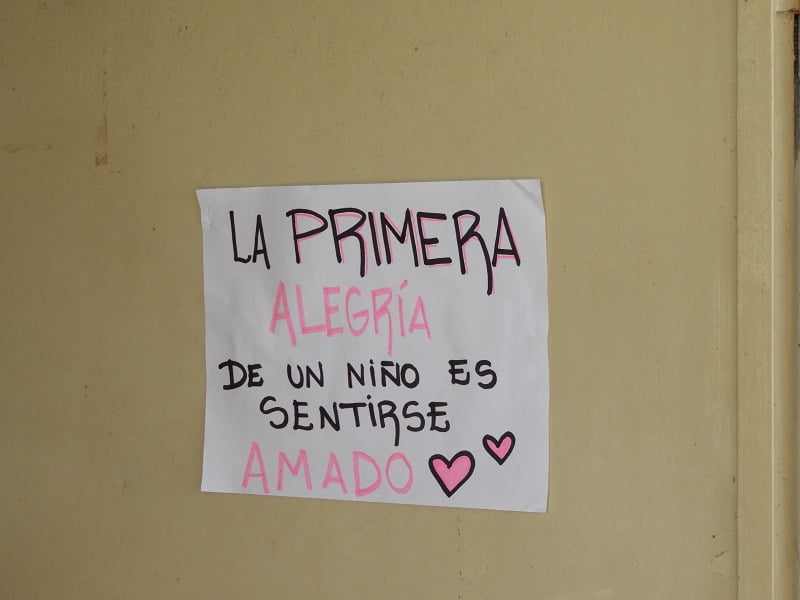 LA PRIMERA
ALEGRÍA
DE UN NIÑO ES
SENTIRSE
AMADO